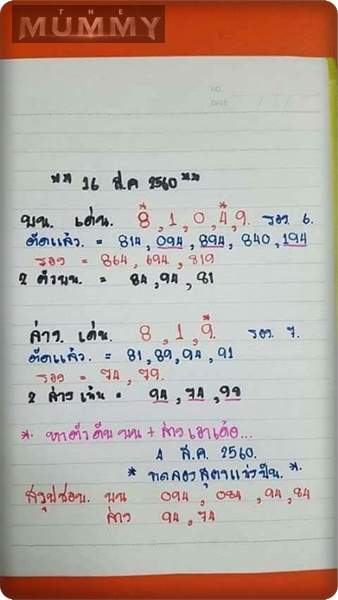 THE
MUMMY
NO.
DATE
** 16 ส.ค 2560 **
บน. เด่น. 8, 1, 0, 4, 9. รอง 6.
ตัดแล้ว. = 814, 094, 894, 840, 194
รอง = 864, 694, 819
2 ตัวบน = 84, 94, 81
ล่าง. เด่น. 8, 1, 9. รอง. 7.
ตัดแล้ว. = 81, 89, 94, 91
รอง = 74, 79.
2 ล่าง เน้น = 94, 74, 99
* หาตัวดับ บน + ล่าง เอาเด้อ...
4 ส.ค. 2560.
* ทดลองสูตร *
สรุปซอน. บน 094, 084, 94, 84
ล่าง 94, 74